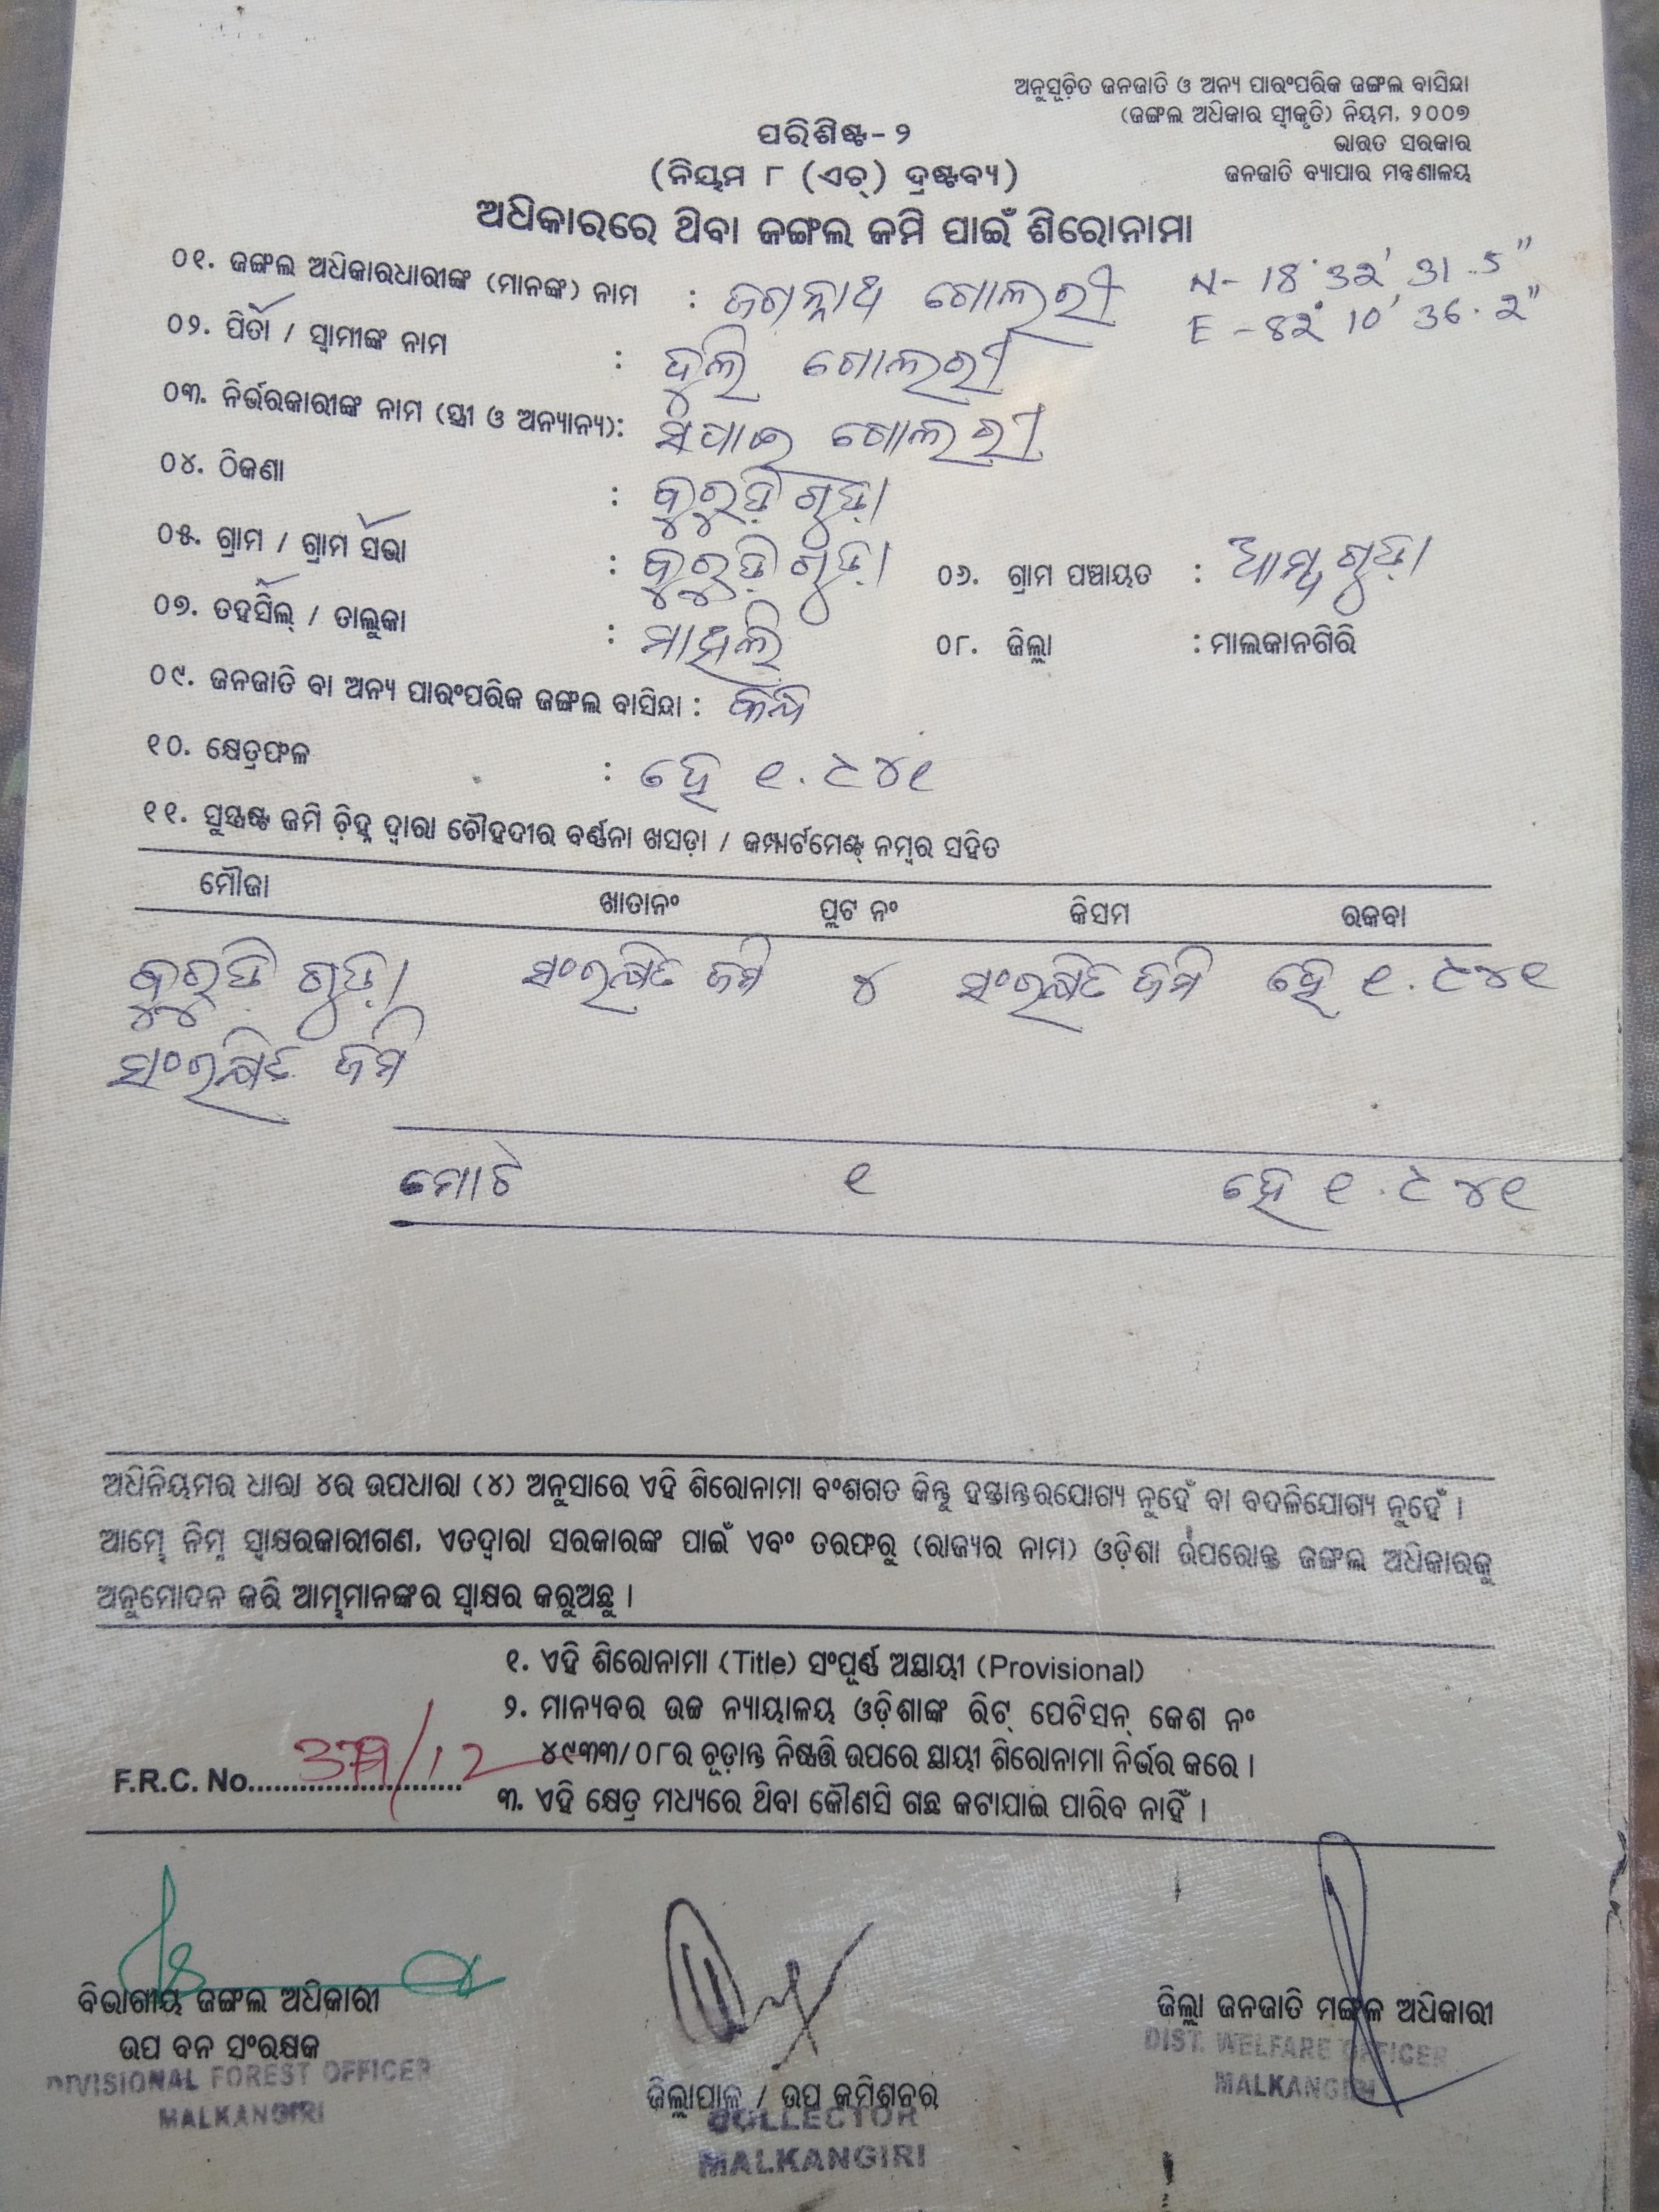 ଅନୁସୂଚିତ ଜନଜାତି ଓ ଅନ୍ୟ ପାରଂପରିକ ଜଙ୍ଗଲ ବାସିନ୍ଦା
(ଜଙ୍ଗଲ ଅଧିକାର ସ୍ୱୀକୃତି) ନିୟମ, ୨୦୦୭
ଭାରତ ସରକାର
ଜନଜାତି ବ୍ୟାପାର ମନ୍ତ୍ରଣାଳୟ
ପରିଶିଷ୍ଟ-୨
(ନିୟମ ୮ (ଏଚ୍) ଦ୍ରଷ୍ଟବ୍ୟ)
ଅଧିକାରରେ ଥିବା ଜଙ୍ଗଲ ଜମି ପାଇଁ ଶିରୋନାମା
୦୧. ଜଙ୍ଗଲ ଅଧିକାରଧାରୀଙ୍କ (ମାନଙ୍କ) ନାମ : ଜଗନ୍ନାଥ ଗୋଲରୀ
N- 18° 32' 31.5"
E - 82° 10' 36.2"
୦୨. ପିତା / ସ୍ୱାମୀଙ୍କ ନାମ : ଦୁଲି ଗୋଲରୀ
୦୩. ନିର୍ଭରକାରୀଙ୍କ ନାମ (ସ୍ତ୍ରୀ ଓ ଅନ୍ୟାନ୍ୟ): ଗୋଲରୀ
୦୪. ଠିକଣା : କୁରୁଡ଼ି ଗୁଡ଼ା
୦୫. ଗ୍ରାମ / ଗ୍ରାମ ସଭା : କୁରୁଡ଼ି ଗୁଡ଼ା ୦୬. ଗ୍ରାମ ପଞ୍ଚାୟତ : ଆମ୍ବଗୁଡ଼ା
୦୭. ତହସିଲ୍ / ତାଲୁକା : ମାଥିଲି ୦୮. ଜିଲ୍ଲା : ମାଲକାନଗିରି
୦୯. ଜନଜାତି ବା ଅନ୍ୟ ପାରଂପରିକ ଜଙ୍ଗଲ ବାସିନ୍ଦା :
୧୦. କ୍ଷେତ୍ରଫଳ : ହେ ୧.୯୪୧
୧୧. ସୁସ୍ପଷ୍ଟ ଜମି ଚିହ୍ନ ଦ୍ୱାରା ଚୌହଦୀର ବର୍ଣ୍ଣନା ଖସଡ଼ା / କମ୍ପାର୍ଟମେଣ୍ଟ୍ ନମ୍ବର ସହିତ
ମୌଜା ଖାତାନଂ ପ୍ଲଟ ନଂ କିସମ ରକବା
କୁରୁଡି ଗୁଡ଼ା ସଂରକ୍ଷିତ ଜମି ୪ ସଂରକ୍ଷିତ ଜମି ହେ ୧.୯୪୧
ସଂରକ୍ଷିତ ଜମି
ମୋଟ ୧ ହେ ୧.୯୪୧
ଅଧିନିୟମର ଧାରା ୪ର ଉପଧାରା (୪) ଅନୁସାରେ ଏହି ଶିରୋନାମା ବଂଶଗତ କିନ୍ତୁ ହସ୍ତାନ୍ତରଯୋଗ୍ୟ ନୁହେଁ ବା ବଦଳିଯୋଗ୍ୟ ନୁହେଁ ।
ଆମ୍ଭେ ନିମ୍ନ ସ୍ୱାକ୍ଷରକାରୀଗଣ, ଏତଦ୍ୱାରା ସରକାରଙ୍କ ପାଇଁ ଏବଂ ତରଫରୁ (ରାଜ୍ୟର ନାମ) ଓଡ଼ିଶା ଉପରୋକ୍ତ ଜଙ୍ଗଲ ଅଧିକାରକୁ
ଅନୁମୋଦନ କରି ଆମ୍ଭମାନଙ୍କର ସ୍ୱାକ୍ଷର କରୁଅଛୁ ।
୧. ଏହି ଶିରୋନାମା (Title) ସଂପୂର୍ଣ୍ଣ ଅସ୍ଥାୟୀ (Provisional)
୨. ମାନ୍ୟବର ଉଚ୍ଚ ନ୍ୟାୟାଳୟ ଓଡ଼ିଶାଙ୍କ ରିଟ୍ ପେଟିସନ୍ କେଶ ନଂ
୪୯୩୩/୦୮ର ଚୂଡ଼ାନ୍ତ ନିଷ୍ପତ୍ତି ଉପରେ ସ୍ଥାୟୀ ଶିରୋନାମା ନିର୍ଭର କରେ ।
F.R.C. No......................... /12
୩. ଏହି କ୍ଷେତ୍ର ମଧ୍ୟରେ ଥିବା କୌଣସି ଗଛ କଟାଯାଇ ପାରିବ ନାହିଁ ।
ବିଭାଗୀୟ ଜଙ୍ଗଲ ଅଧିକାରୀ
ଉପ ବନ ସଂରକ୍ଷକ
DIVISIONAL FOREST OFFICER
MALKANGIRI
ଜିଲ୍ଲାପାଳ / ଉପ କମିଶନର
COLLECTOR
MALKANGIRI
ଜିଲ୍ଲା ଜନଜାତି ମଙ୍ଗଳ ଅଧିକାରୀ
DIST. WELFARE OFFICER
MALKANGIRI